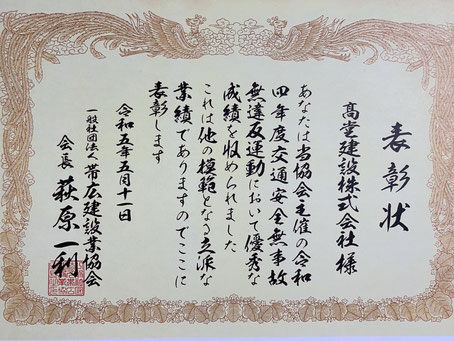 表彰状
髙堂建設株式会社様
あなたは当協会主催の令和
四年度交通安全無事故
無違反運動において優秀な
成績を収められました
これは他の模範となる立派な
業績でありますのでここに
表彰します
令和五年五月十一日
一般社団法人帯広建設業協会
会長 萩原一利